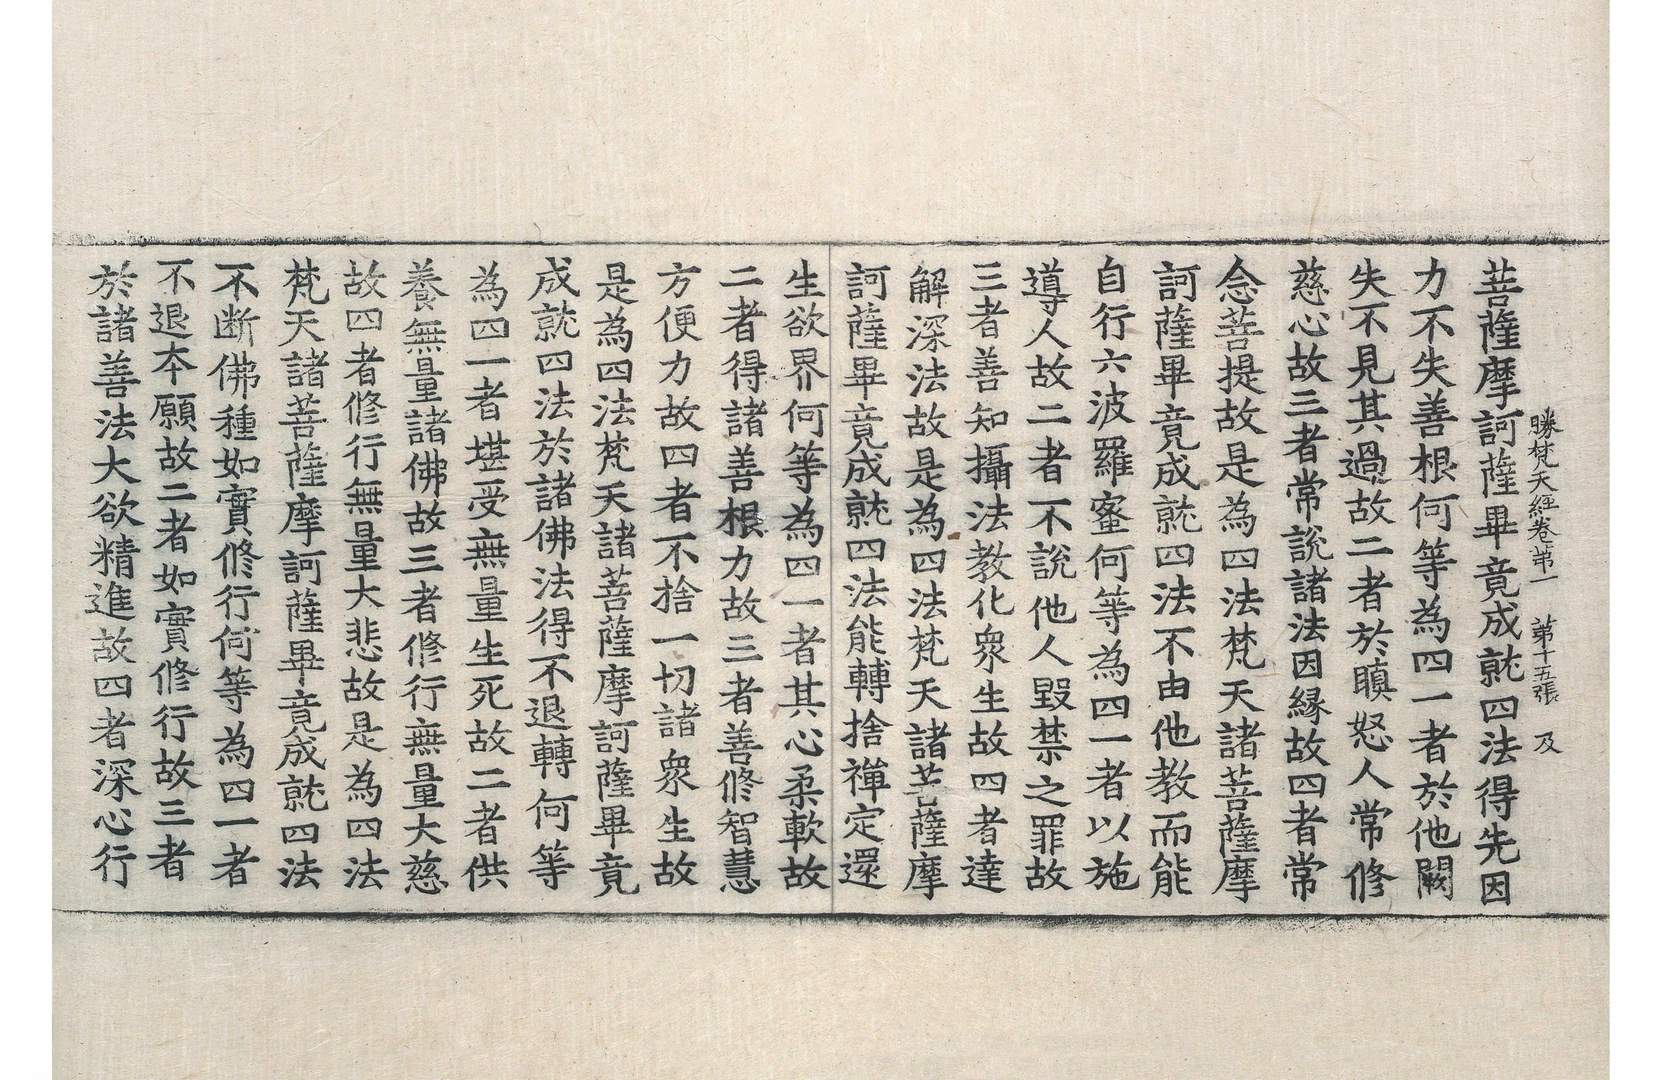 勝梵天經卷第一 第十五張 及
菩薩摩訶薩畢竟成就四法得先因
力不失善根何等為四一者於他闕
失不見其過故二者於瞋怒人常修
慈心故三者常說諸法因緣故四者常
念菩提故是為四法梵天諸菩薩摩
訶薩畢竟成就四法不由他教而能
自行六波羅蜜何等為四一者以施
導人故二者不說他人毀禁之罪故
三者善知攝法教化衆生故四者達
解深法故是為四法梵天諸菩薩摩
訶薩畢竟成就四法能轉捨禪定還
生欲界何等為四一者其心柔軟故
二者得諸善根力故三者善修智慧
方便力故四者不捨一切諸衆生故
是為四法梵天諸菩薩摩訶薩畢竟
成就四法於諸佛法得不退轉何等
為四一者堪受無量生死故二者供
養無量諸佛故三者修行無量大慈
故四者修行無量大悲故是為四法
梵天諸菩薩摩訶薩畢竟成就四法
不断佛種如實修行何等為四一者
不退本願故二者如實修行故三者
於諸善法大欲精進故四者深心行